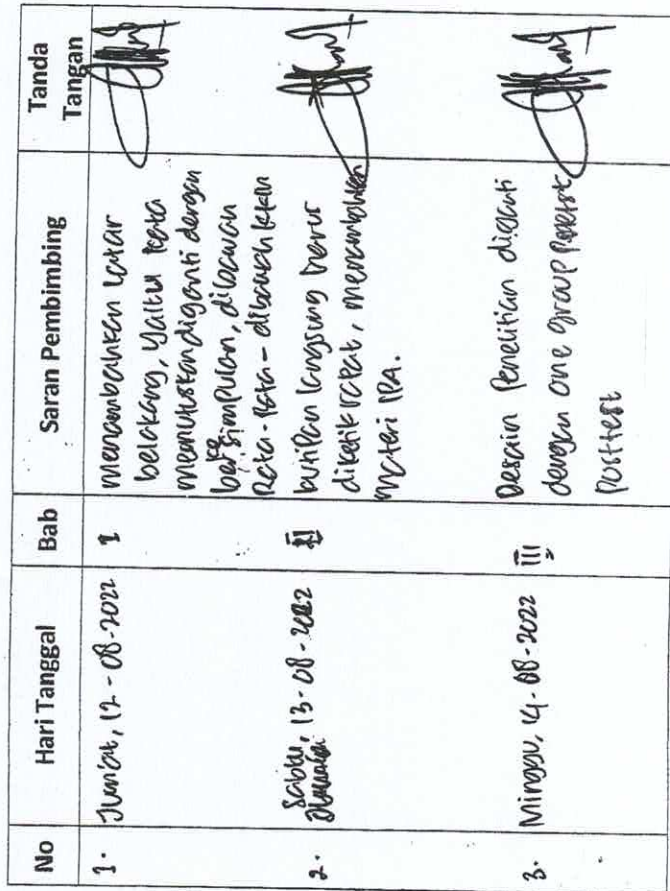 No Hari Tanggal Bab Saran Pembimbing Tanda Tangan
1. Jum'at, 12-08-2022 I menambahkan latar
belakang, yaitu kata
memutuskan diganti dengan
berkesimpulan, dilacwan
Rata-Rata - dibawah KKM
2. Sabtu, 13-08-2022 II kutipan langsung harus
diketik rapat, menambahkan
materi IPA.
3. Minggu, 14-08-2022 III Desain Penelitian diganti
dengan one group pretest
Posttest